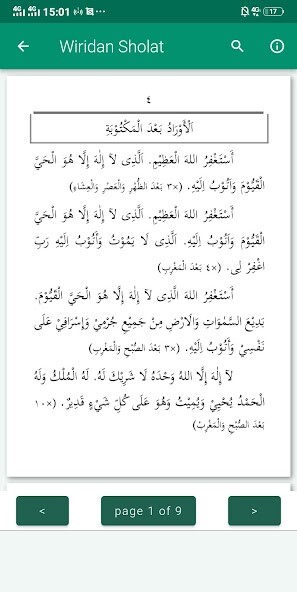 15:01
17
Wiridan Sholat
٤
اَلْأَوْرَادُ بَعْدَ الْمَكْتُوْبَةِ
أَسْتَغْفِرُ اللهَ الْعَظِيْمَ. اَلَّذِى لَآ إِلٰهَ إِلَّا هُوَ الْحَيَّ
الْقَيُّوْمَ وَأَتُوْبُ إِلَيْهِ. (×٣ بَعْدَ الظُّهْرِ وَالْعَصْرِ وَالْعِشَاءِ)
أَسْتَغْفِرُ اللهَ الْعَظِيْمَ. اَلَّذِى لَآ إِلٰهَ إِلَّا هُوَ الْحَيَّ
الْقَيُّوْمَ وَأَتُوْبُ إِلَيْهِ. اَلَّذِى لَا يَمُوْتُ وَأَتُوْبُ إِلَيْهِ رَبِّ
اغْفِرْ لِى. (×٤ بَعْدَ الْمَغْرِبِ)
أَسْتَغْفِرُ اللهَ الَّذِى لَآ إِلٰهَ إِلَّا هُوَ الْحَيَّ الْقَيُّوْمَ.
بَدِيْعَ السَّمٰوَاتِ وَالْأَرْضِ مِنْ جَمِيْعِ جُرْمِيْ وَإِسْرَافِيْ عَلَى
نَفْسِيْ وَأَتُوْبُ إِلَيْهِ. (×٣ بَعْدَ الصُّبْحِ وَالْمَغْرِبِ)
لَآ إِلٰهَ إِلَّا اللهُ وَحْدَهُ لَا شَرِيْكَ لَهُ. لَهُ الْمُلْكُ وَلَهُ
الْحَمْدُ يُحْيِيْ وَيُمِيْتُ وَهُوَ عَلَى كُلِّ شَيْءٍ قَدِيْرٌ. (×١٠
بَعْدَ الصُّبْحِ وَالْمَغْرِبِ)
<
page 1 of 9
>